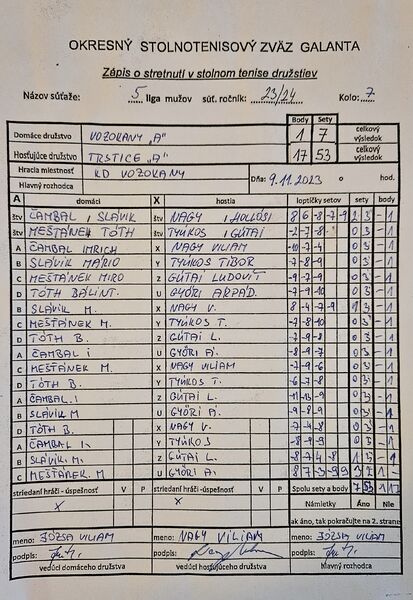 OKRESNÝ STOLNOTENISOVÝ ZVÄZ GALANTA
Zápis o stretnutí v stolnom tenise družstiev
Názov súťaže: 5 liga mužov súť. ročník: 23/24 Kolo: 7
Body Sety
Domáce družstvo VOZOKANY "A" 1 7 celkový výsledok
Hosťujúce družstvo TRSTICE "A" 17 53 celkový výsledok
Hracia miestnosť KD VOZOKANY Dňa: 9.11.2023 o hod.
Hlavný rozhodca
A domáci X hostia loptičky setov sety body
štv ČAMBAL, SLÁVIK štv NAGY, HOLLÓSI 8 6 -8 -7 -9 2 3 - 1
štv MEŠŤÁNEK TÓTH štv TYUKOS, GÚTAI -2 -7 -8 0 3 - 1
A ČAMBAL IMRICH X NAGY VILIAM -10 -7 -4 0 3 - 1
B SLÁVIK MÁRIO Y TYUKOS TIBOR -7 -8 -9 0 3 - 1
C MEŠŤÁNEK MIRO Z GÚTAI LUDOVÍT -9 -9 0 3 - 1
D TÓTH BÁLINT. U GYÖRI ARPÁD. -7 -9 -10 0 3 - 1
B SLÁVIK M. X NAGY V. 8 -4 -7 -9 1 3 - 1
C MEŠŤÁNEK M. Y TYUKOS T. -7 -8 -10 0 3 - 1
D TÓTH B. Z GÚTAI L. -7 -8 0 3 - 1
A ČAMBAL I U GYÖRI A. -8 -9 -7 0 3 - 1
C MEŠŤÁNEK M. X NAGY VILIAM -7 -9 -6 0 3 - 1
D TÓTH B. Y TYUKOS T. -6 -7 -8 0 3 - 1
A ČAMBAL. I Z GÚTAI L. -11 -13 -9 0 3 - 1
B SLÁVIK M U GYÖRI A. -9 -8 -9 0 3 - 1
D TÓTH B. X NAGY V. 0 3 - 1
A ČAMBAL I. Y TYUKOS -8 -9 -9 0 3 - 1
B SLÁVIK. M. Z GÚTAI L. 1 3 - 1
C MEŠŤÁNEK. M U GYÖRI A. 3 1 -
striedaní hráči - úspešnosť V P striedaní hráči - úspešnosť V P Spolu sety a body 7 53 1 17
X X Námietky Áno Nie
ak áno, tak pokračujte na 2. strane
meno: JÓZSA VILIAM meno: NAGY VILIAM meno: JÓZSA VILIAM
podpis: podpis: podpis:
vedúci domáceho družstva vedúci hosťujúceho družstva hlavný rozhodca